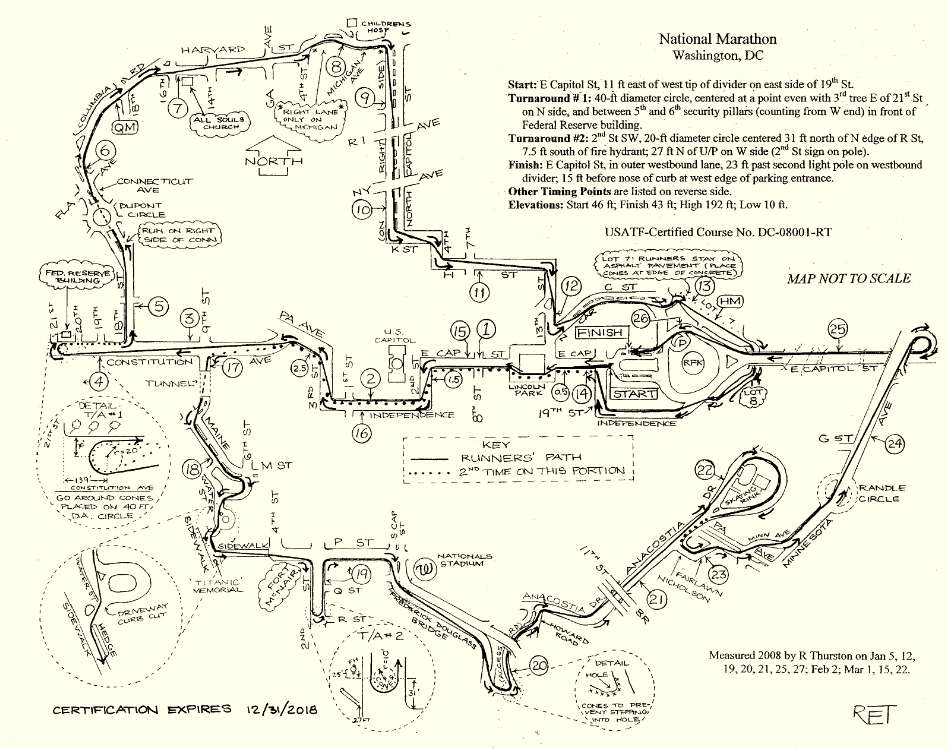 National Marathon
Washington, DC
Start: E Capitol St, 11 ft east of west tip of divider on east side of 19th St.
Turnaround # 1: 40-ft diameter circle, centered at a point even with 3rd tree E of 21st St
on N side, and between 5th and 6th security pillars (counting from W end) in front of
Federal Reserve building.
Turnaround #2: 2nd St SW, 20-ft diameter circle centered 31 ft north of N edge of R St,
7.5 ft south of fire hydrant; 27 ft N of U/P on W side (2nd St sign on pole).
Finish: E Capitol St, in outer westbound lane, 23 ft past second light pole on westbound
divider; 15 ft before nose of curb at west edge of parking entrance.
Other Timing Points are listed on reverse side.
Elevations: Start 46 ft; Finish 43 ft; High 192 ft; Low 10 ft.
USATF-Certified Course No. DC-08001-RT
MAP NOT TO SCALE
CHILDRENS
HOSP
HARVARD ST
GA AVE
4TH ST
MICHIGAN AVE
8
COLUMBIA RD
18TH
16TH
14TH
7
QM
ALL SOULS
CHURCH
RIGHT LANE
ONLY ON
MICHIGAN
NORTH
9
RIGHT SIDE
ON
NORTH CAPITOL ST
R I AVE
NY AVE
10
K ST
4TH
7TH
H
11
ST
6
CONNECTICUT
AVE
FLA AVE
DUPONT
CIRCLE
RUN ON RIGHT
SIDE OF CONN
FED. RESERVE
BUILDING
21 ST
20TH
19TH
18TH ST
5
3
9TH ST
PA AVE
CONSTITUTION AVE
4
17
TUNNEL
2.5
3RD ST
1ST ST
U.S.
CAPITOL
2
16
INDEPENDENCE
2ND ST
E CAP
15
1
1.5
8TH ST
LINCOLN
PARK
13TH
12
LOT 7: RUNNERS STAY ON
ASPHALT PAVEMENT (PLACE
CONES AT EDGE OF CONCRETE)
C ST
13
LOT 7
HM
26
FINISH
VP
RFK
E CAP
0.5
14
START
19TH ST
INDEPENDENCE
LOT
8
25
E CAPITOL ST
AVE
24
G ST
RANDLE
CIRCLE
MINNESOTA
MINN AVE
AVE
PA
22
SKATING
RINK
ANACOSTIA DR
23
FAIRLAWN
NICHOLSON
21
11TH ST BR
ANACOSTIA DR
HOWARD
ROAD
20
ACCESS
FREDERICK DOUGLASS
BRIDGE
NATIONALS
STADIUM
W
S CAP ST
P ST
19
Q ST
R ST
2ND ST
FORT
McNAIR
4TH ST
SIDEWALK
SIDEWALK
'TITANIC'
MEMORIAL
WATER ST
18
MAINE
6TH ST
M ST
KEY
RUNNERS' PATH
2ND TIME ON THIS PORTION
DETAIL
T/A #1
21ST ST
20'
139'
CONSTITUTION AVE
GO AROUND CONES
PLACED ON 40 FT.
DIA. CIRCLE
WATER ST
SIDEWALK
HEDGE
DRIVEWAY
CURB CUT
T/A #2
31'
27FT
DETAIL
HOLE
CONES TO PRE-
VENT STEPPING
INTO HOLE
Measured 2008 by R Thurston on Jan 5, 12,
19, 20, 21, 25, 27; Feb 2; Mar 1, 15, 22.
CERTIFICATION EXPIRES 12/31/2018
RET